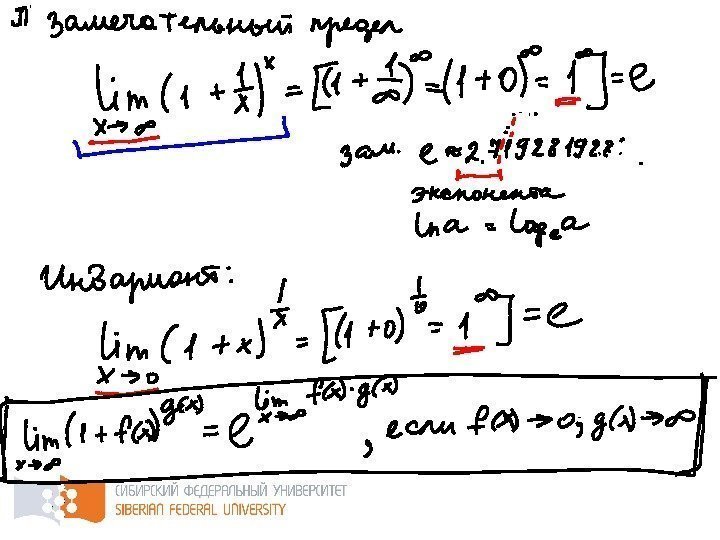 II Замечательный предел
lim (1 + 1/x)^x = [(1 + 1/∞)^∞ = (1+0)^∞ = 1^∞] = e
x→∞
зам. e ≈ 2.719281928...
экспонента
ln a = log_e a
Инвариант:
lim (1 + x)^(1/x) = [(1+0)^(1/0) = 1^∞] = e
x→0
lim (1 + f(x))^g(x) = e^(lim x→∞ f(x)·g(x)), если f(x)→0; g(x)→∞
x→∞
СИБИРСКИЙ ФЕДЕРАЛЬНЫЙ УНИВЕРСИТЕТ
SIBERIAN FEDERAL UNIVERSITY